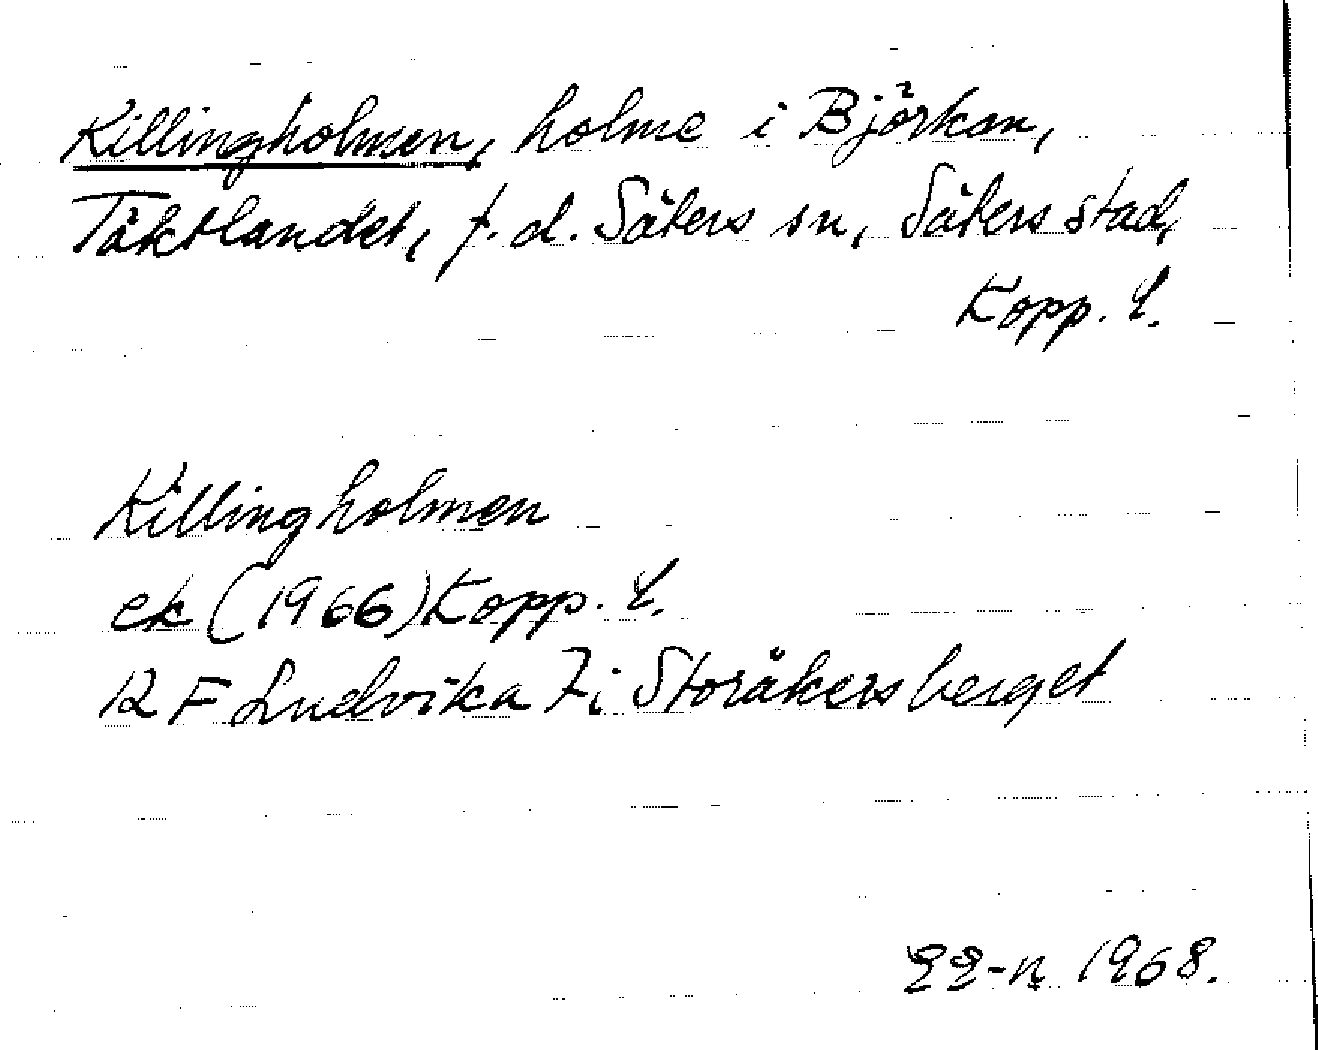 Killingholmen, holme i Björkan,
Täktlandet, f.d. Säters sn, Säters stad,
Kopp. l.
Killingholmen
ek (1966) Kopp. l.
12 F Ludvika 7 i Storåkersberget
1968.